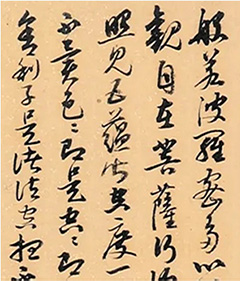 般若波羅蜜多心
觀自在菩薩行深
照見五蘊皆空度一
不異色色即是空空即
舍利子是諸法空相不